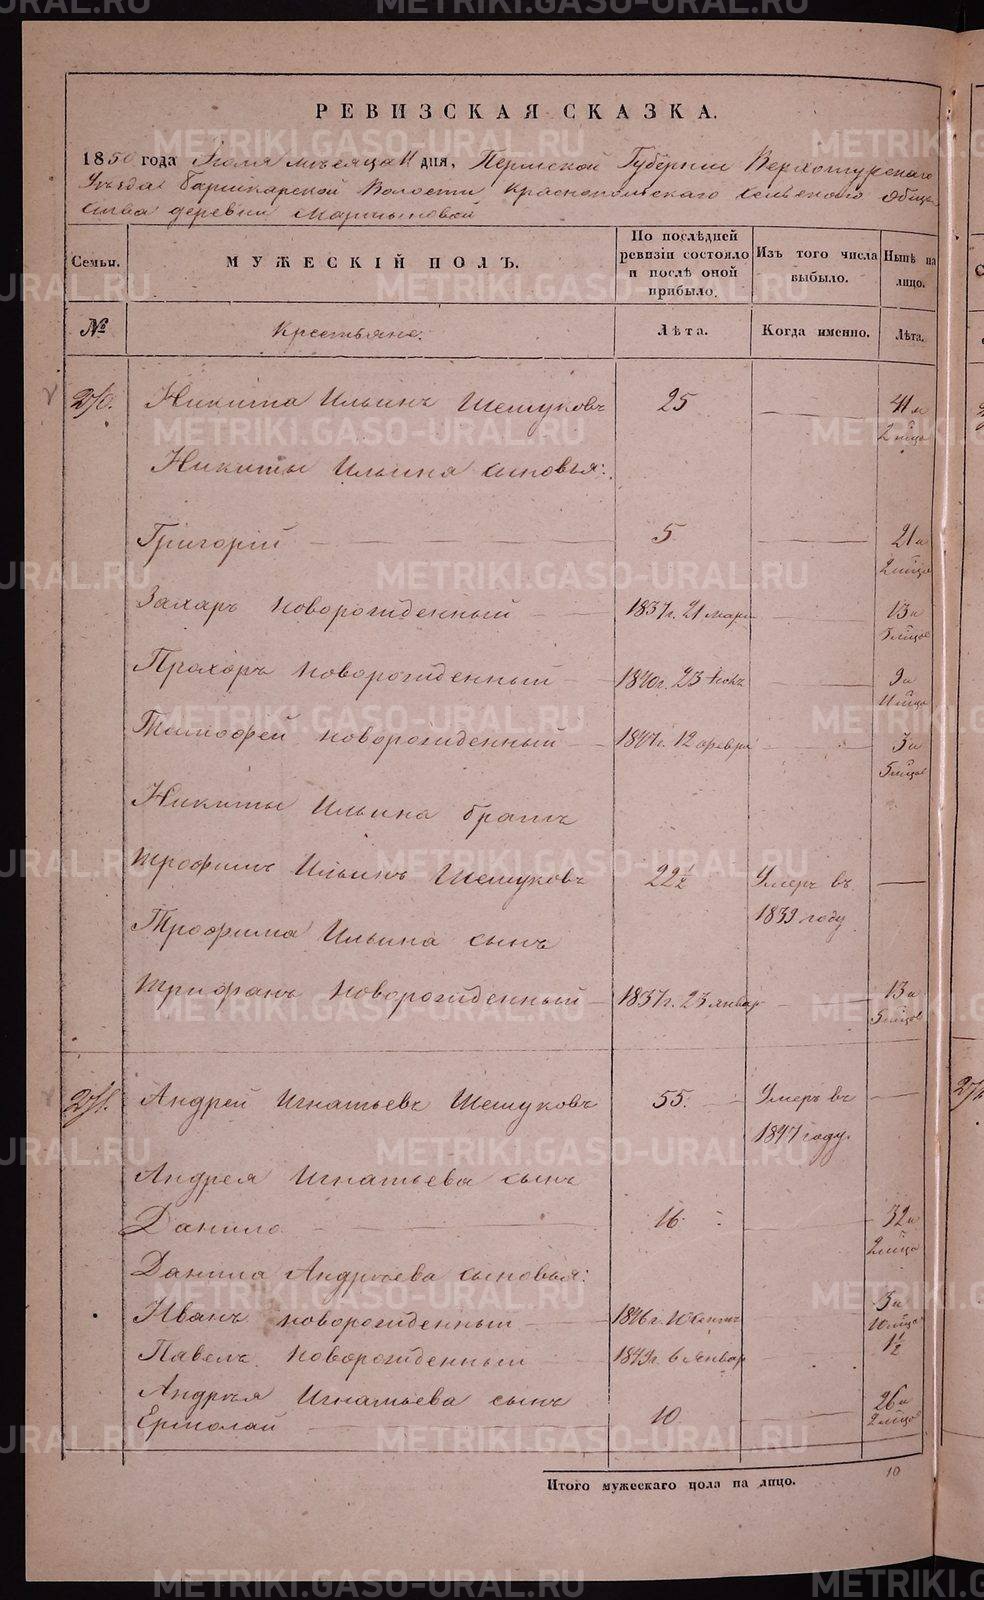 РЕВИЗСКАЯ СКАЗКА.
1850 года Іюля мѣсяца 11 дня, Пермской Губерніи Верхотурскаго
Уѣзда Башкарской Волости Краснопольскаго Сельскаго Обще-
ства деревни Мартыновой
Семьи. МУЖЕСКІЙ ПОЛЪ. По послѣдней ревизіи состояло и послѣ оной прибыло. Изъ того числа выбыло. Нынѣ на лицо.
№ Крестьяне. Лѣта. Когда именно. Лѣта.
270. Никита Ильинъ Шешуковъ 25 — 41 и 2 м̃ца
Никиты Ильина сыновья:
Григорій — 5 — 21 и 2 м̃ца
Захаръ новорожденный — 1837 г. 21 мар — 13 и
Прохоръ новорожденный — 1840 г. 23 — 9 и 11 м̃ца
Тимофей новорожденный — 1847 г. 12 февра — 3 и 5 м̃цов
Никиты Ильина братъ
Трофимъ Ильинъ Шешуковъ 22 ½ Умеръ въ 1839 году —
Трофима Ильина сынъ
Трифанъ новорожденный — 1837 г. 23 январ — 13 и 5 м̃цов
271. Андрей Игнатьевъ Шешуковъ 55. — Умеръ въ 1847 году. —
Андрея Игнатьева сынъ
Данило — 16 — 32 и 2 м̃ца
Данила Андреева сыновья:
Иванъ новорожденный — 1846 г. 10 — 3 и 10 м̃ца
Павелъ новорожденный — 1849 г. 6 январ — 1 ½
Андрея Игнатьева сынъ
Ермолай — 10 — 26 и 2 м̃цов
Итого мужескаго пола на лицо. 10
METRIKI.GASO-URAL.RU